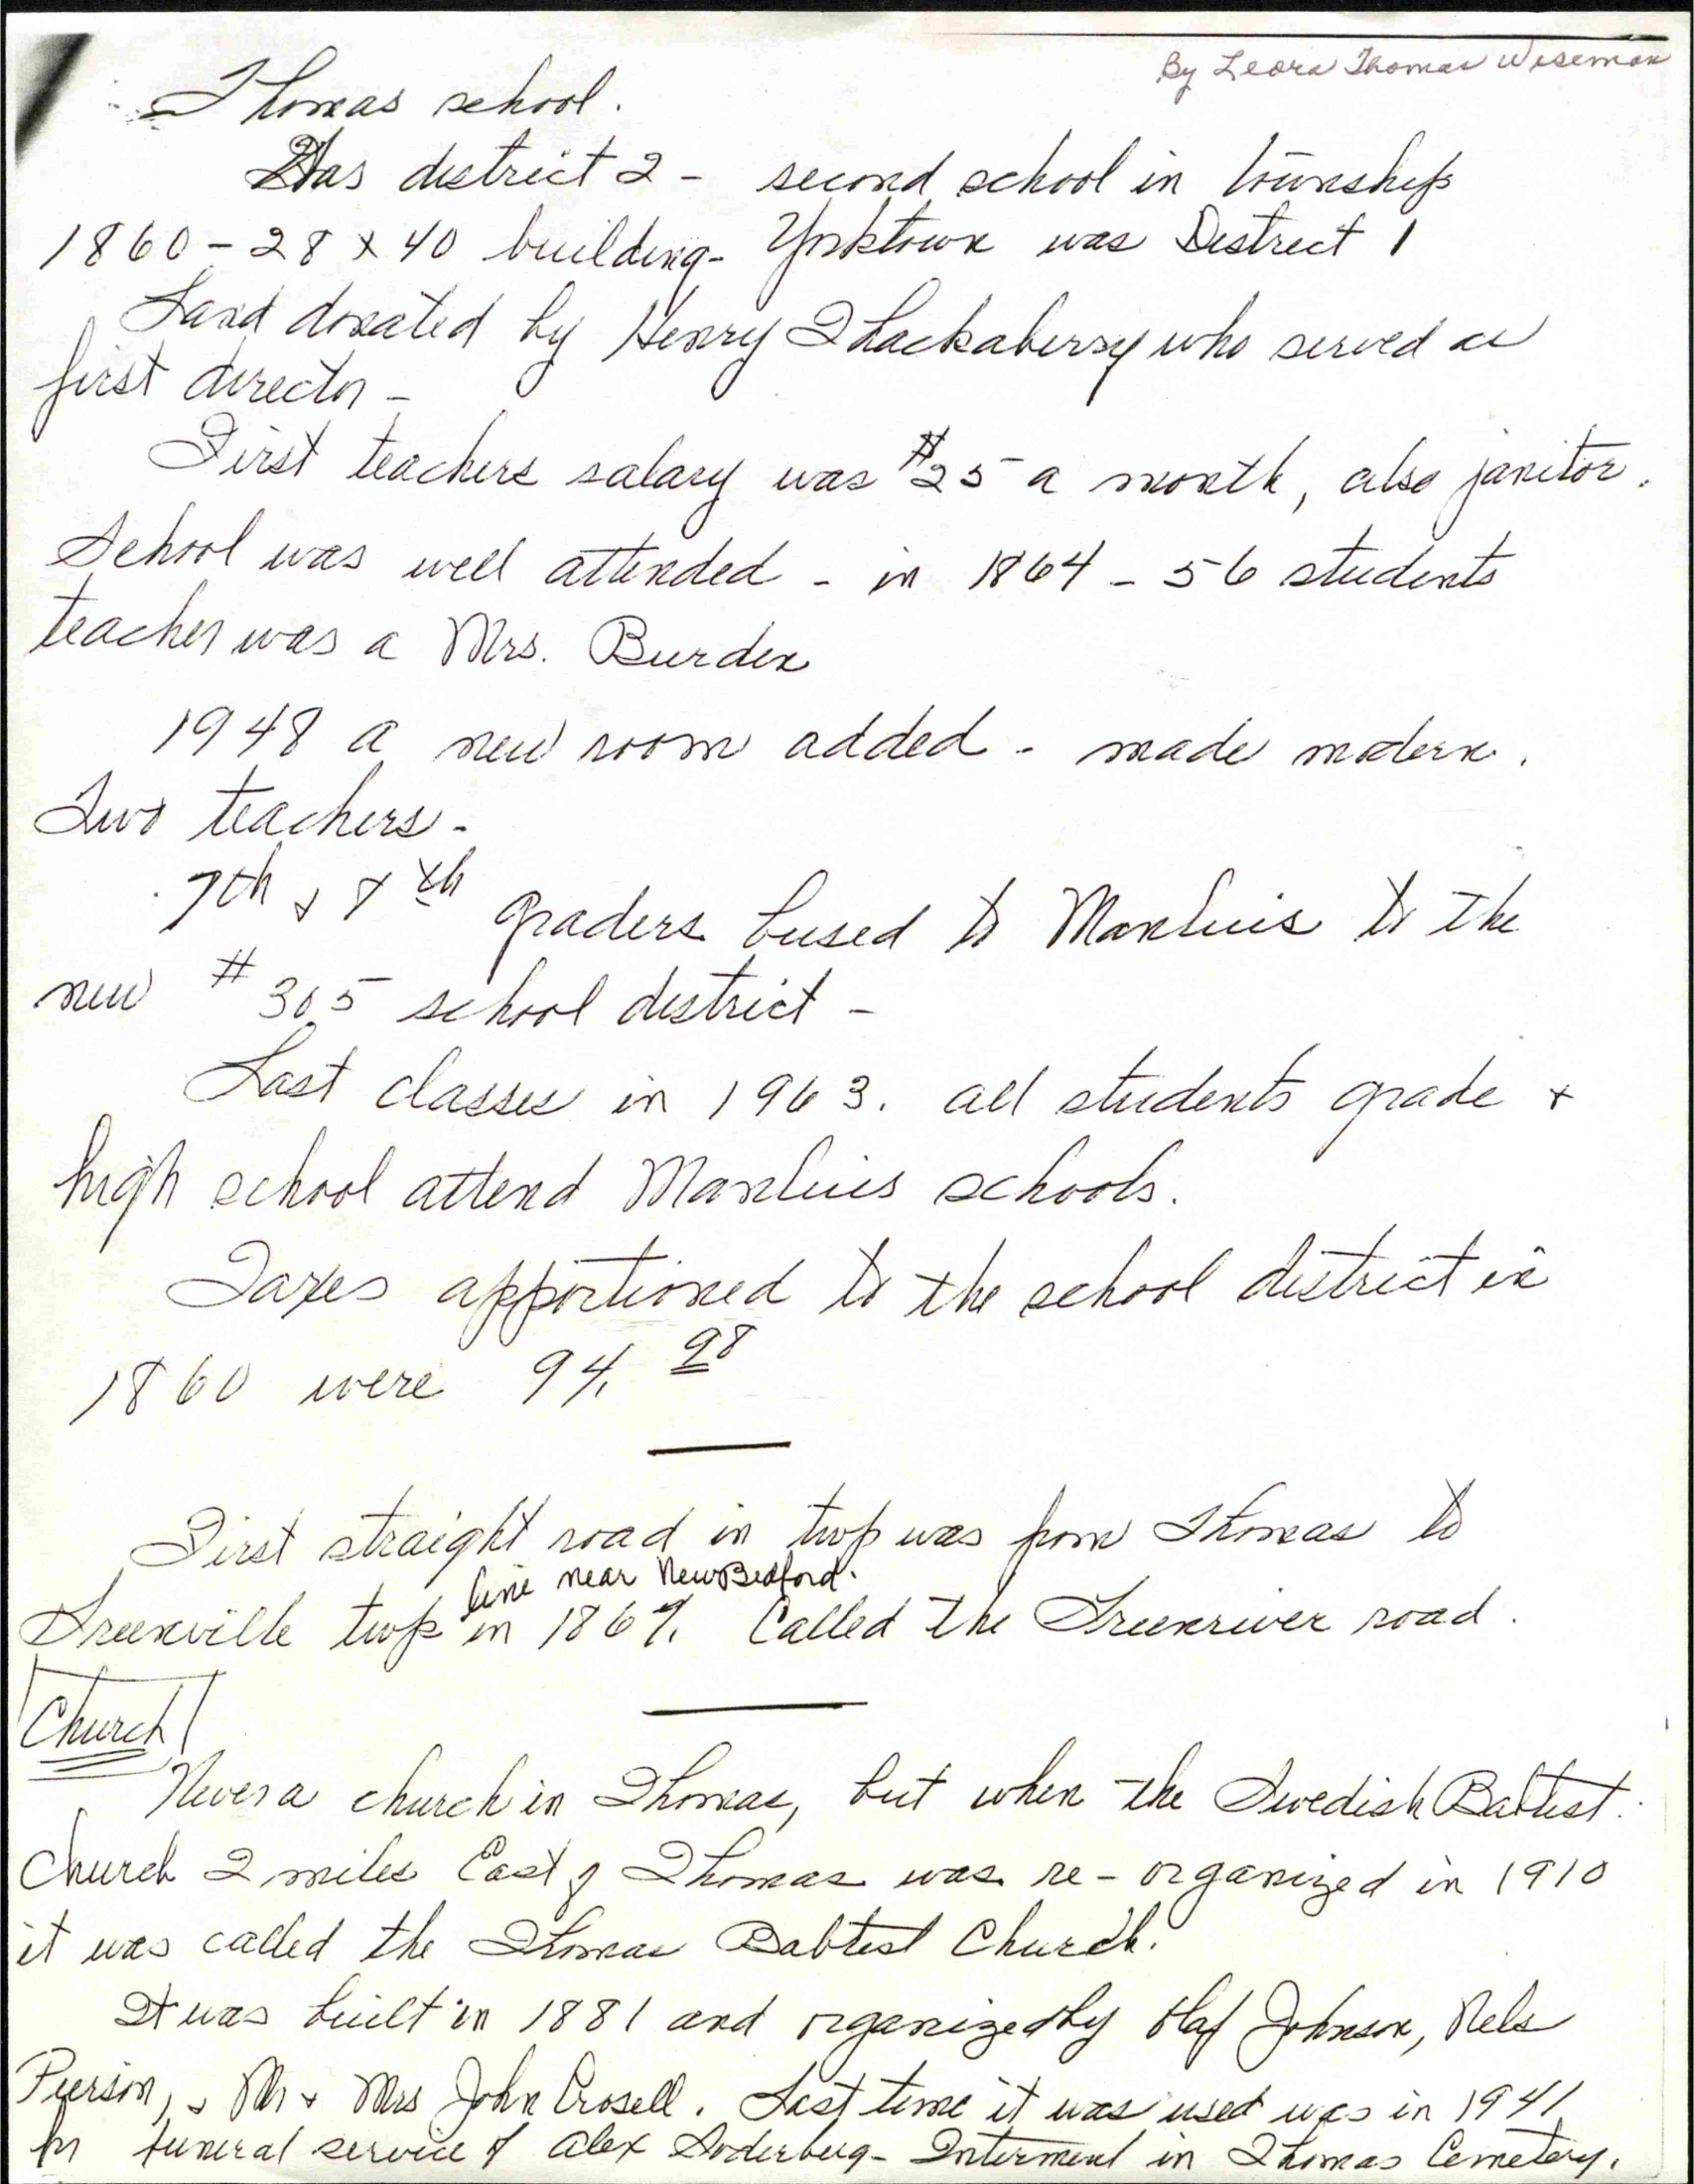 By Leora Thomas Wiseman
Thomas school.
Was district 2 - second school in township
1860 - 28 x 40 building - Yorktown was District 1
Land donated by Henry Thackaberry who served as
first director -
First teachers salary was $25 a month, also janitor.
School was well attended - in 1864 - 56 students
teacher was a Mrs. Burden
1948 a new room added - made modern.
Two teachers -
7th & 8th graders bused to Manluis to the
new #305 school district -
Last classes in 1963. all students grade +
high school attend Manluis schools.
Taxes apportioned to the school district in
1860 were 94.98
First straight road in twp was from Thomas to
line near New Bedford.
Greenville twp in 1869. Called the Greenriver road.
Church
Never a church in Thomas, but when the Swedish Babtist
Church 2 miles East of Thomas was re-organized in 1910
it was called the Thomas Babtist Church.
It was built in 1881 and organized by Olaf Johnson, Nels
Pierson, & Mr + Mrs John Crosell. Last time it was used was in 1941
for funeral service of Alex Soderberg - Interment in Thomas Cemetery.